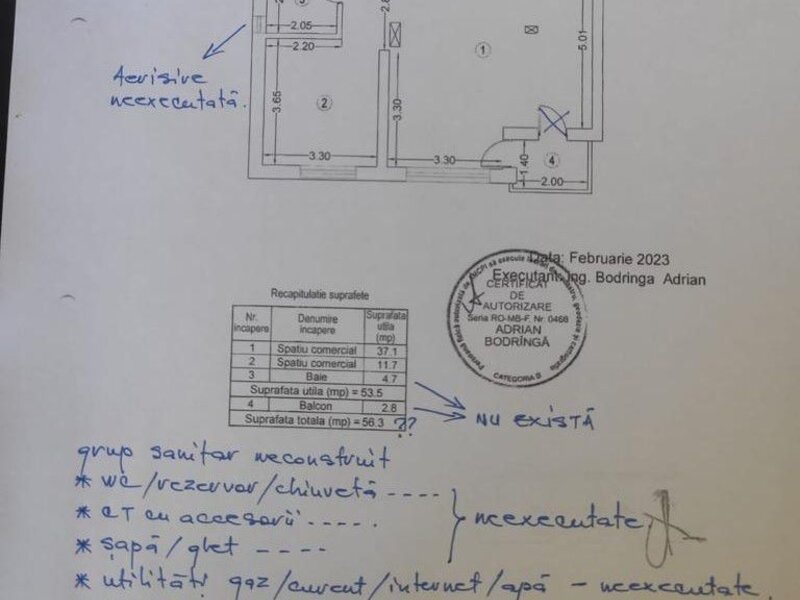 3
2.05
2.20
1
5.01
Aerisire
neexecutată.
3.65
2
3.30
3.30
3.30
1.40
4
2.00
Data: Februarie 2023
Executant: Ing. Bodringa Adrian
CERTIFICAT
DE
AUTORIZARE
Seria RO-MB-F. Nr. 0466
ADRIAN
BODRÎNGĂ
CATEGORIA
Recapitulatie suprafete
Nr. incapere Denumire incapere Suprafata utila (mp)
1 Spatiu comercial 37.1
2 Spatiu comercial 11.7
3 Baie 4.7
Suprafata utila (mp) = 53.5
4 Balcon 2.8
Suprafata totala (mp) = 56.3 ??
NU EXISTĂ
grup sanitar neconstruit
* WC/rezervor/chiuvetă ----
* CT cu accesorii -----.
* șapă/glet ----
neexecutate
* utilități gaz/curent/internet/apă - neexecutate.